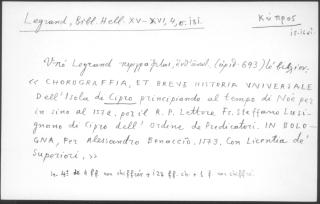 Legrand, Bibl. Hell. XV-XVI, 4, σ. 131. Κύπρος
Ὑπὸ Legrand περιγράφεται, (ἀριθ. 693) τὸ βιβλίον.
« CHOROGRAFFIA, ET BREVE HISTORIA UNIVERSALE
Dell'Isola de Cipro principiando al tempo di Noè per
in sino al 1572, per il R. P. Lettore Fr. Steffano Lusi-
gnano di Cipro dell' Ordine de Predicatori. IN BOLO-
GNA, Per Alessandro Benaccio, 1573, Con Licentia de'
Superiori, »
In 4° de 4 ff. non chiffrés + 124 ff. ch. + 1 f. non chiffré.